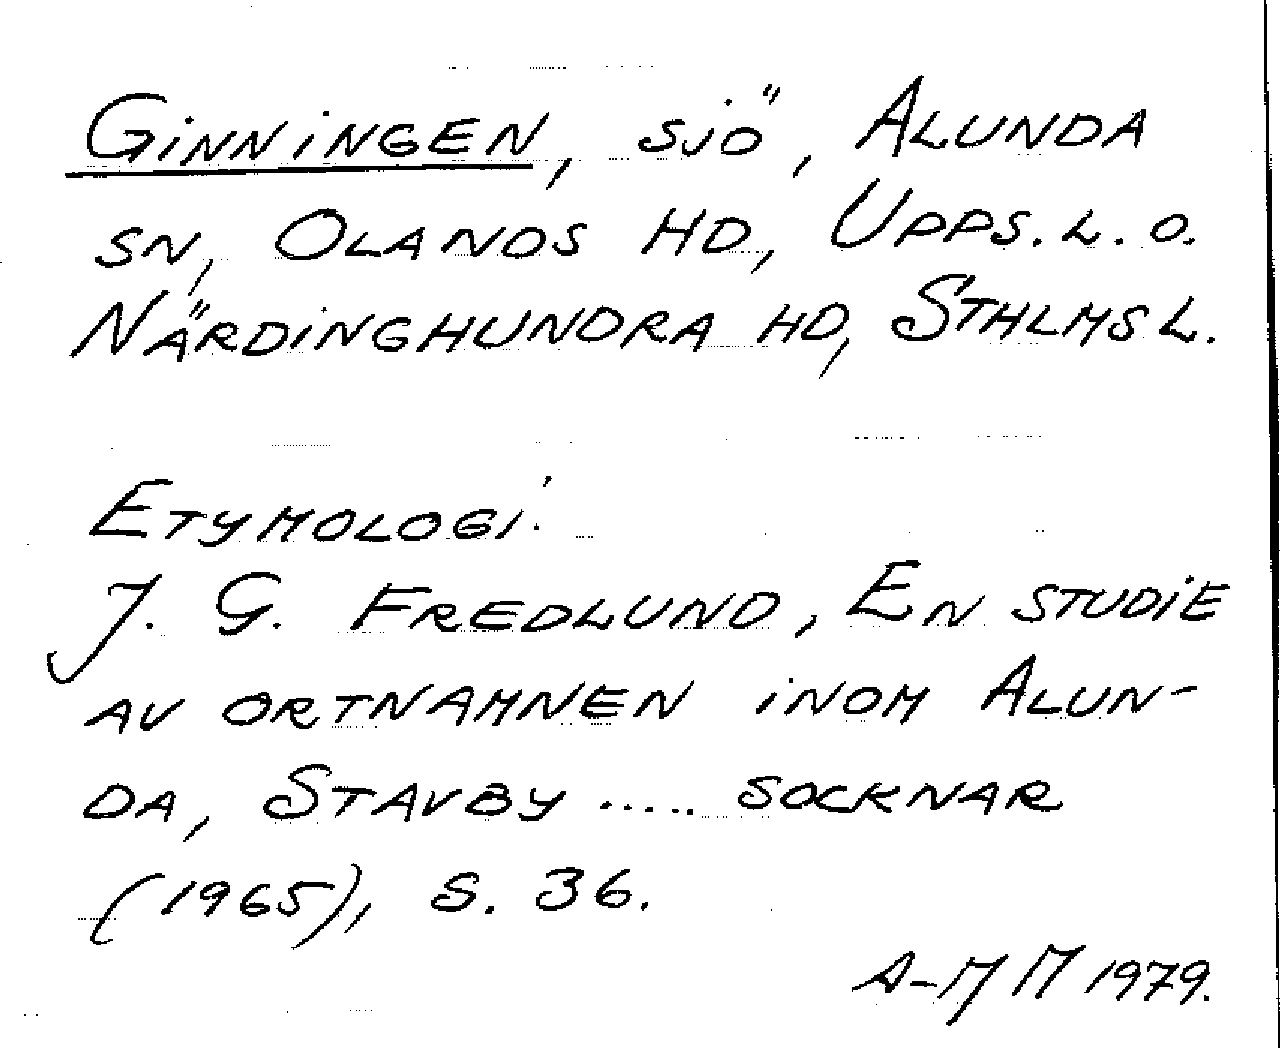 GINNINGEN, SJÖ, ALUNDA
SN, OLANDS HD, UPPS. L. O.
NÄRDINGHUNDRA HD, STHLMS L.
ETYMOLOGI:
J. G. FREDLUND, EN STUDIE
AV ORTNAMNEN INOM ALUN-
DA, STAVBY ..... SOCKNAR
(1965), S. 36.
A-M M 1979.